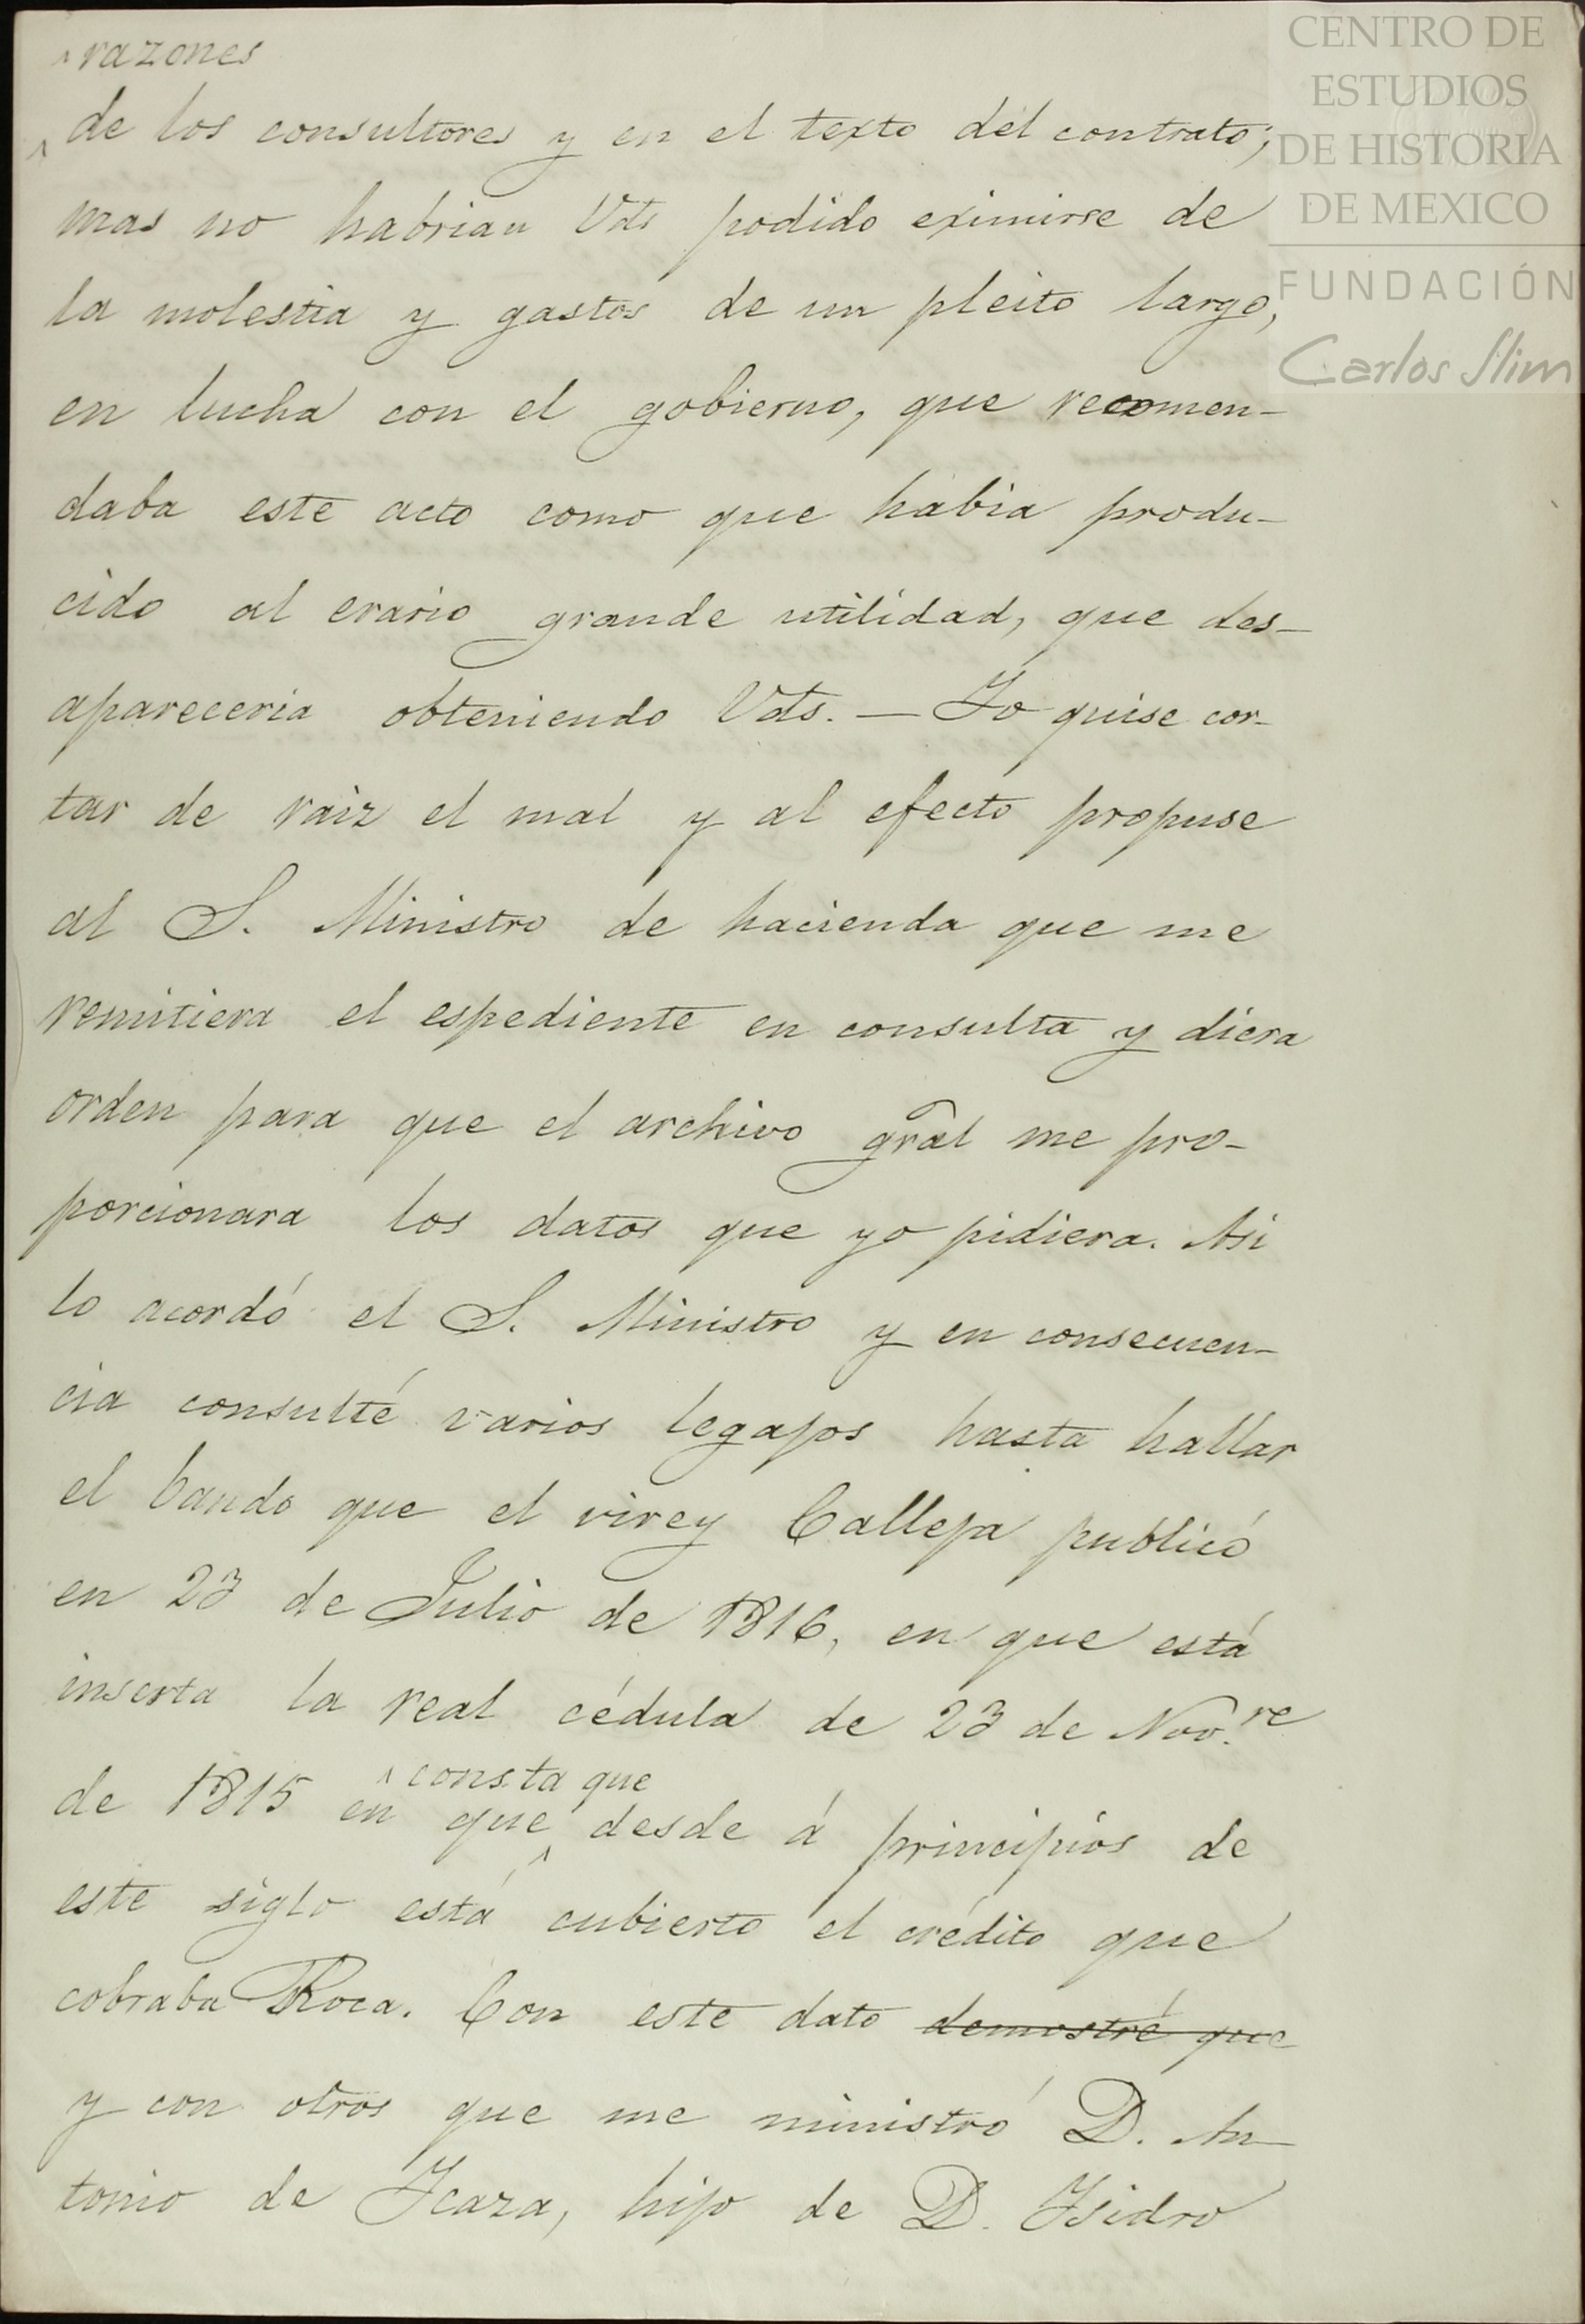 razones
de los consultores y en el texto del contrato;
mas no habrian Vds podido eximirse de
la molestia y gastos de un pleito largo,
en lucha con el gobierno, que recomen-
daba este acto como que habia produ-
cido al erario grande utilidad, que des-
apareceria obteniendo Vds. — Yo quise cor-
tar de raiz el mal y al efecto propuse
al S. Ministro de hacienda que me
remitiera el espediente en consulta y diera
orden para que el archivo gral me pro-
porcionara los datos que yo pidiera. Asi
lo acordó el S. Ministro y en consecuen-
cia consulté varios legajos hasta hallar
el bando que el virey Calleja publicó
en 23 de Julio de 1816, en que está
inserta la real cédula de 23 de Nov.re
consta que
de 1815 en que desde á principios de
este siglo está cubierto el crédito que
cobraba Roca. Con este dato demostré que
y con otros que me ministró D. An-
tonio de Icaza, hijo de D. Isidro
CENTRO DE
ESTUDIOS
DE HISTORIA
DE MEXICO
FUNDACIÓN
Carlos Slim